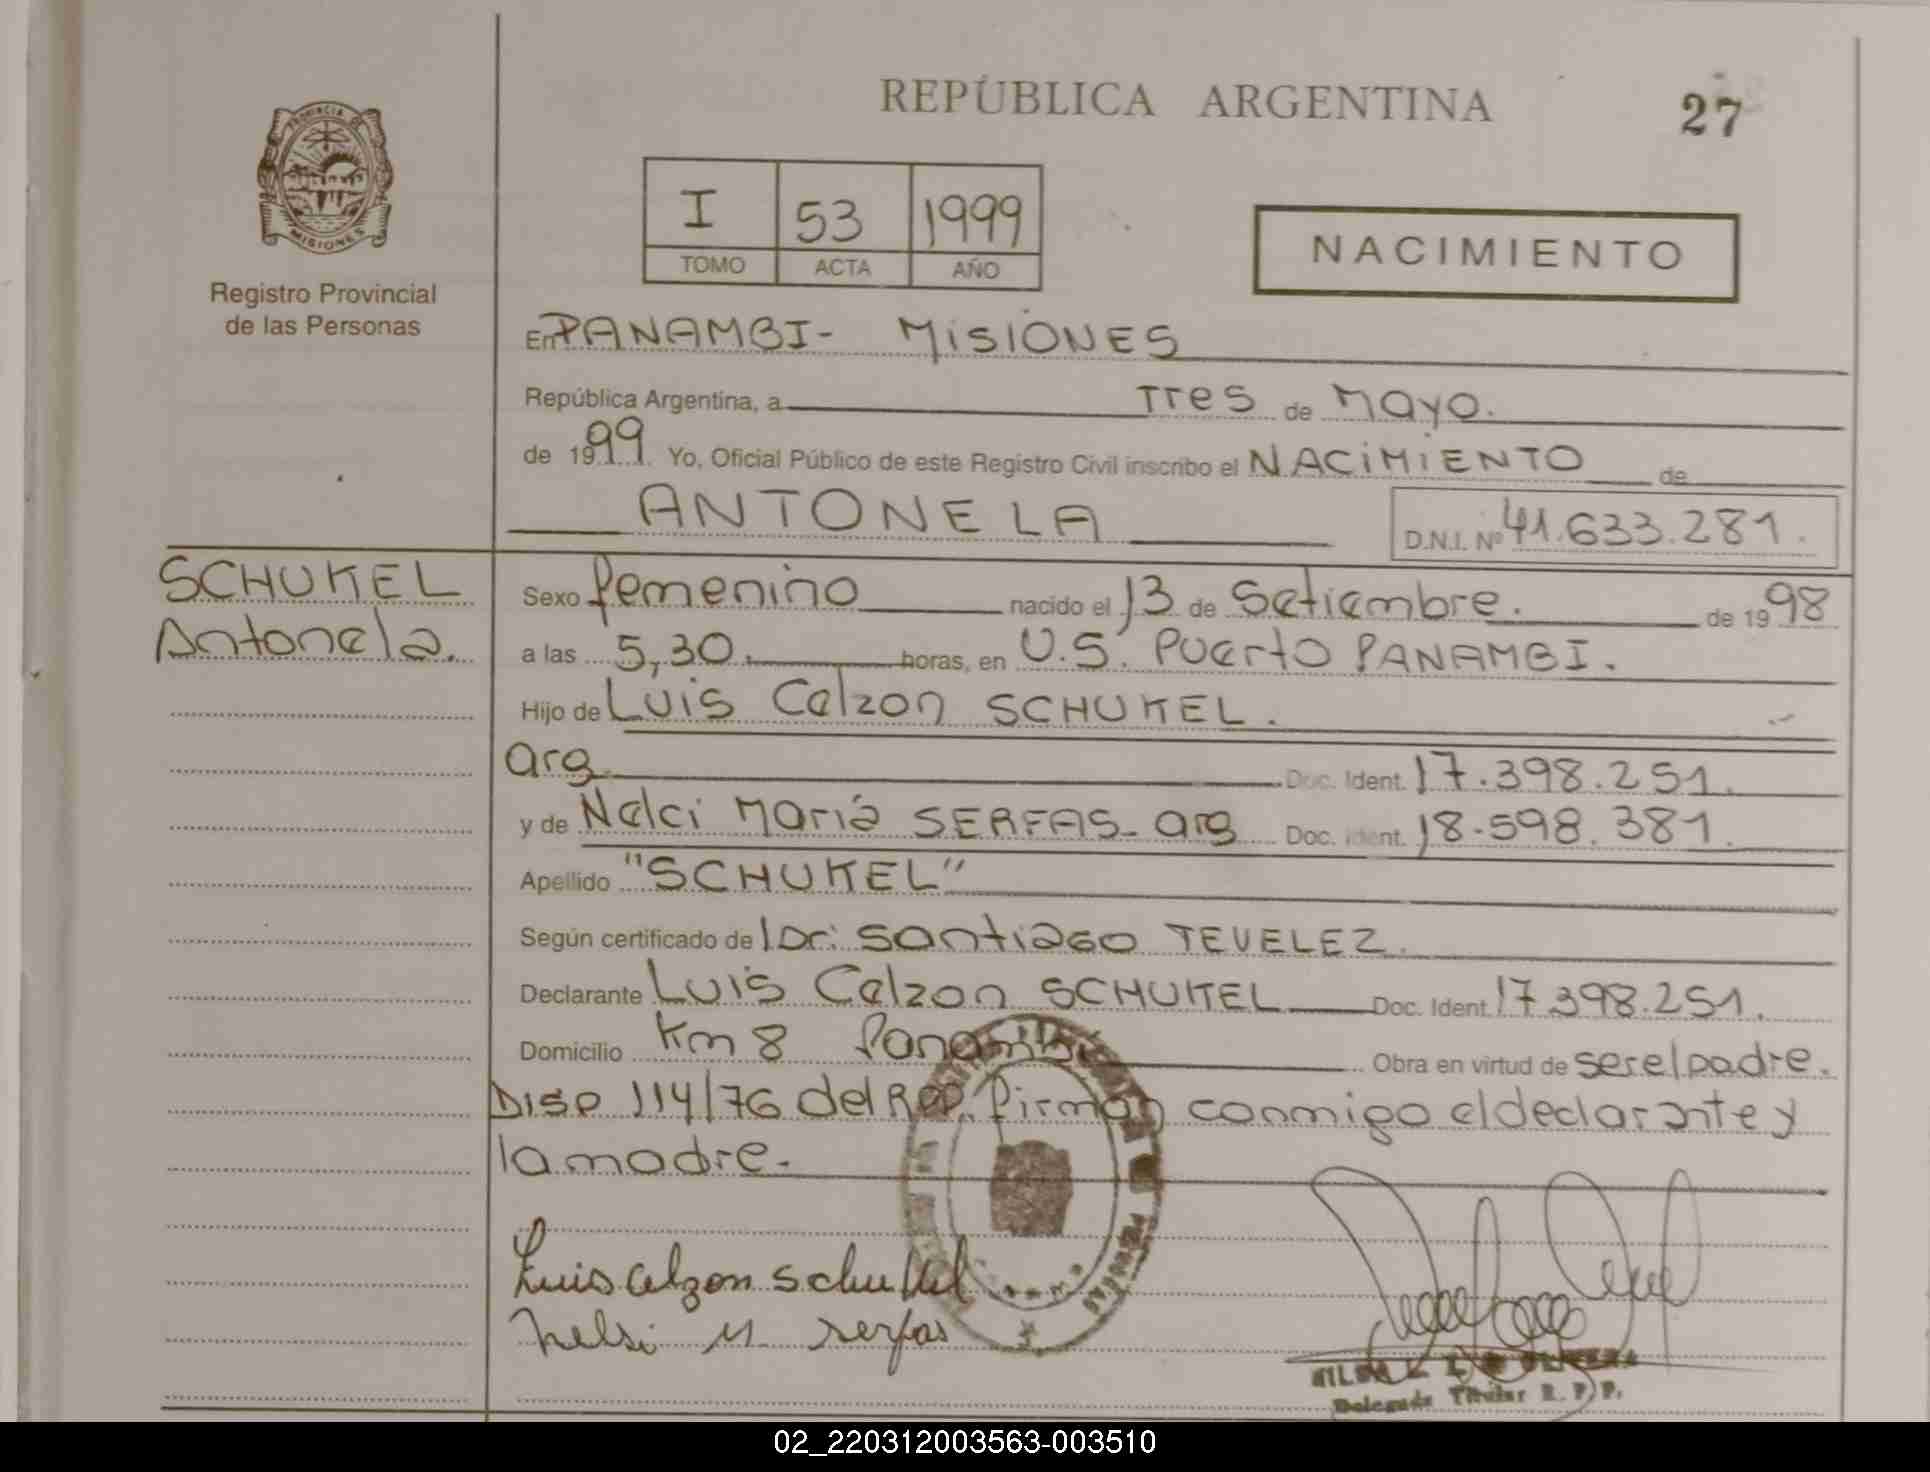 REPÚBLICA ARGENTINA
27
PROVINCIA DE
MISIONES
Registro Provincial
de las Personas
I 53 1999
TOMO ACTA AÑO
NACIMIENTO
En PANAMBI- MISIONES
República Argentina, a Tres de Mayo.
de 1999. Yo, Oficial Público de este Registro Civil inscribo el NACIMIENTO de
ANTONELA
D.N.I. Nº 41.633.281.
SCHUKEL
Antonela.
Sexo femenino nacido el 13 de Setiembre. de 1998
a las 5,30. horas, en U.S. Puerto PANAMBI.
Hijo de Luis Celzon SCHUKEL.
arg. Doc. Ident. 17.398.251.
y de Nelci Maria SERFAS- arg Doc. Ident. 18.598.381.
Apellido "SCHUKEL"
Según certificado de Dr: Santiago TEVELEZ.
Declarante Luis Celzon SCHUKEL Doc. Ident. 17.398.251.
Domicilio Km 8 Panambi Obra en virtud de ser el padre.
Disp 114/76 del RPP. firman conmigo el declarante y
la madre.-
Luis Celzon Schukel
Nelsi M serfas
Delegada Titular R. P. P.
02_220312003563-003510